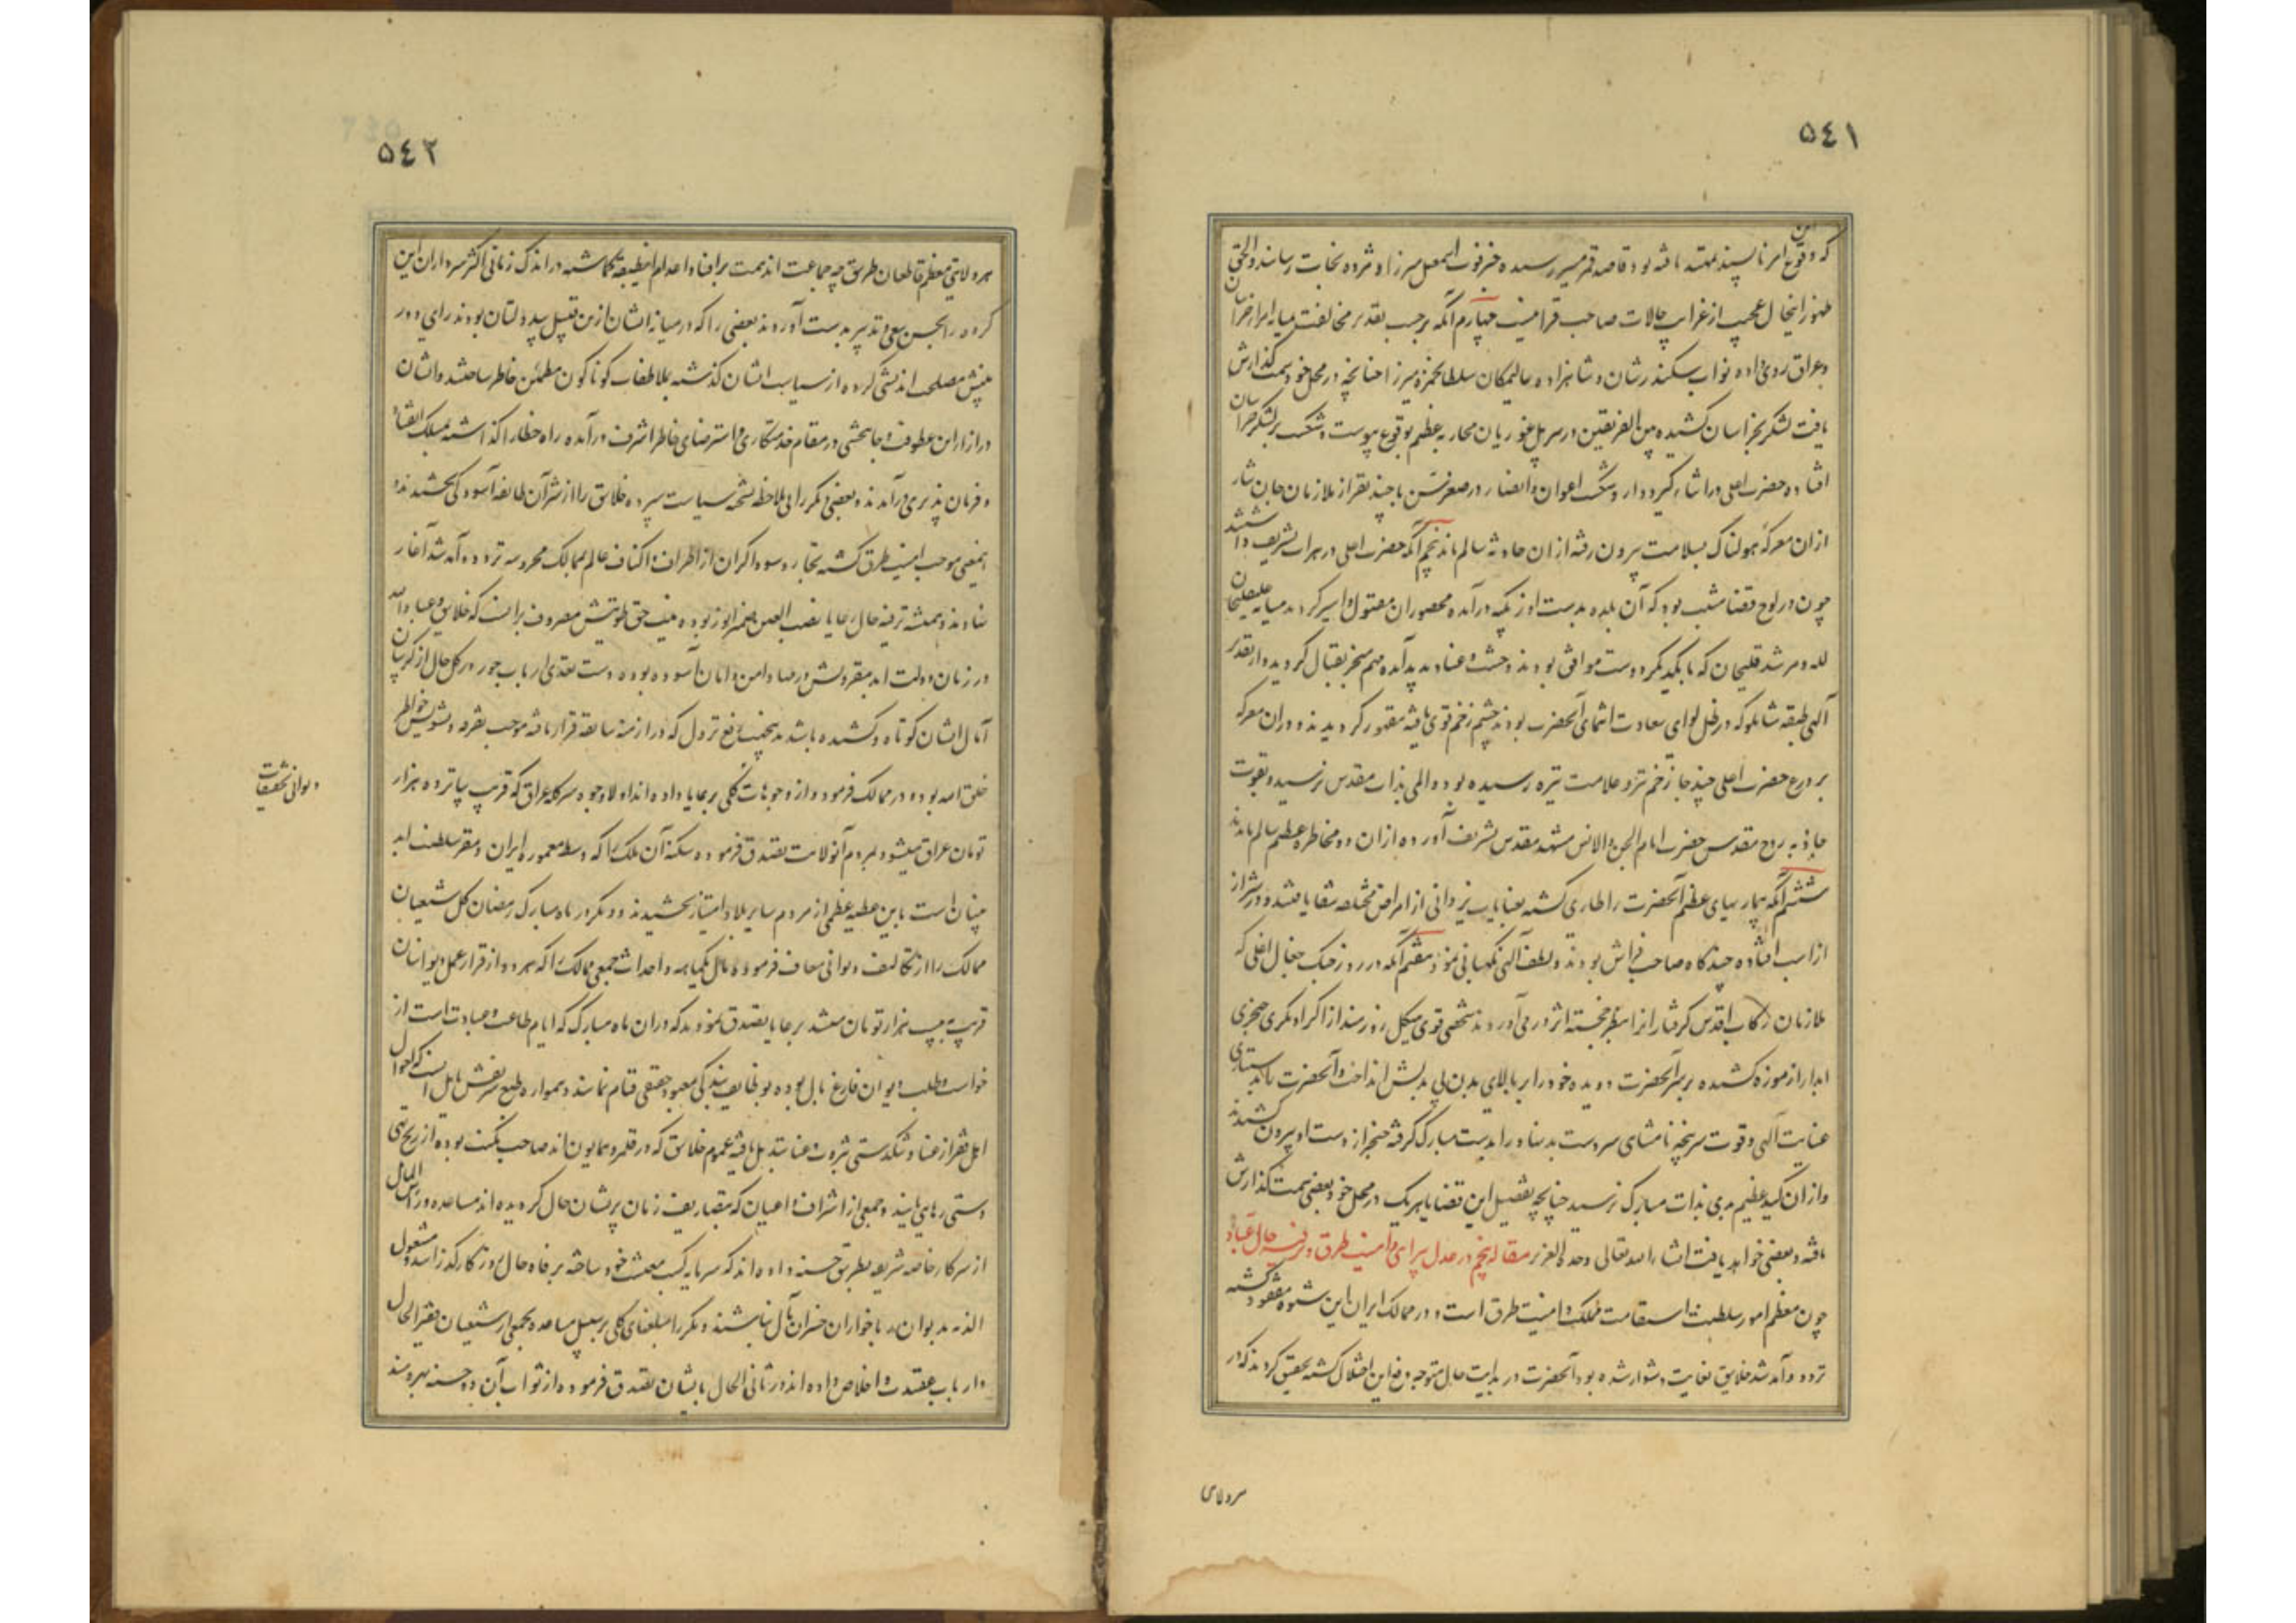 ٥٤١
که وقوع این امر ناپسند نهفته یافته بود قاصد قمر مسیر رسیده خبر فوت اسمعیل میرزا و مژده نجات رسانید و الحق
ظهور اینحال عجیب از غرایب حالات صاحب قرانیست چهارم آنکه برحسب تقدیر مخالفت میانه امراء خراسان
و عراق روی داده نواب سکندرشان و شاهزاده عالمیکان سلطان حمزه میرزا چنانچه در محل خود سمت گذارش
یافت لشکر بخراسان کشیده بین الفریقین در سر پل غوریان محاربه عظیم بوقوع پیوست و شکست بر لشکر خراسان
افتاده حضرت اعلی در اثناء گیر و دار و شکست اعوان و انصار در صغر سن با چند نفر از ملازمان جان نثار
از ان معرکه هولناک بسلامت بیرون رفته از ان حادثه سالم ماند پنجم آنکه حضرت اعلی در هرات تشریف داشتند
چون در لوح قضا مثبت بود که آن بلده بدست اوزبکیه درآمده محصوران مقتول و اسیر گردند میانه علیقلیخان
لله و مرشد قلیخان که با یکدیگر دوست موافق بودند وحشت و عناد پدید آمده مهم منجر بقتال گردید و از تقدیر
آلهی طبقه شاملو که در ظل لوای سعادت انتمای آنحضرت بودند چشم زخم قوی یافته مقهور گردیدند و در ان معرکه
بر درع حضرت اعلی چند جا زخم تیر و علامت نیزه رسیده بود و المی بذات مقدس نرسیده و بقوت
جاذبه روح مقدس حضرت امام الجن و الانس بمشهد مقدس تشریف آورده از ان دو مخاطره عظیم سالم ماندند
ششم آنکه بیماریهای عظیم آنحضرت را طاری گشته بعنایات یزدانی از امراض مختلفه شفا یافتند و در شیراز
از اسب افتاده چندگاه صاحب فراش بودند و لطف آلهی نگهبانی نمود هفتم آنکه در روز جنک جغال اغلی که
ملازمان رکاب اقدس گرفتاران را بنظر خجسته اثر در می آوردند شخصی قوی هیکل زورمند از اکراد مکری خنجری
ابدار از موزه کشیده بر سر آنحضرت دویده خود را بر بالای بدن بی بدلش انداخت و آنحضرت بدستیاری
عنایت آلهی و قوت سرپنجه شاهی سر دست بد بنیاد را بدست مبارک گرفته خنجر از دست او بیرون کشیدند
و از ان کید عظیم بدی بذات مبارک نرسید چنانچه تفصیل این قضایا هر یک در محل خود بعضی سمت گذارش
یافته و بعضی خواهد یافت انشاء الله تعالی وحده العزیز مقاله پنجم در عدل پیرایی و امنیت طرق و ترفیه حال عباد
چون معظم امور سلطنت استقامت مملکت و امنیت طرق است و در ممالک ایران این شیوه مفقود گشته
تردد و آمد شد خلایق بغایت دشوار شده بود آنحضرت در بدایت حال متوجه رفع این اختلال گشته تحقیق کردند که در
هر ولایتی
٥٤٢
هر ولایتی معظم قاطعان طریق چه جماعت اند همت بر افنا و اعدام اینطبقه گماشته در اندک زمانی اکثر سرداران این
گروه را بحسن سعی و تدبیر بدست آوردند بعضی را که در میانه ایشان ازین قبیل سپه دلتان بودند رای دور
بینش مصلحت اندیشی کرده از سیاست ایشان گذشته بلاطفات گوناگون مطمئن خاطر ساختند و ایشان
در ازاء این عطوفت و جانبخشی در مقام خدمتکاری و استرضای خاطر اشرف درآمده راه خطا را گذاشته بمسلک انقیاد
و فرمان پذیری درآمدند و بعضی دیگر را بی ملاحظه بشحنه سیاست سپرده خلایق را از شر آن طایفه آسودگی بخشیدند و
اینمعنی موجب امنیت طرق گشته تجار و سوداگران از اطراف و اکناف عالم بممالک محروسه تردد و آمد شد آغاز
نهادند و همیشه ترفیه حال رعایا نصب العین ضمیر انور بوده نیت حق طویتش مصروف برانست که خلایق و عباد الله
در زمان دولت ابد مقرونش در مهاد امن و امان آسوده بوده دست تعدی ارباب جور در کل حال از گریبان
آمال ایشان کوتاه و کشیده باشد همچنین رفع نزول که در ازمنه سابقه قرار یافته موجب تفرقه و تشویش خواطر
خلق الله بود در ممالک فرمود و از وجوهات کلی برعایا داده اند اولا وجوه سرگله عراق که قریب بپانزده هزار
تومان عراق میشود بمردم آنولایت تصدق فرموده سکنه آن ملک را که وسط معموره ایران و مقر سلطنت ابد
بنیان است باین عطیه عظمی از مردم سایر بلاد امتیاز بخشیدند و دیگر در ماه مبارک رمضان کل شیعیان
ممالک را از تکالیف دیوانی معاف فرموده مال یکماهه و احداث جمیع ممالک را که هر دو از قرار عمل دیوانیان
قریب به بیست هزار تومان میشد برعایا تصدق نمودند که در ان ماه مبارک که ایام طاعت و عبادت است از
خواست و طلب دیوان فارغ بال بوده بوظایف بندگی معبود حقیقی قیام نمایند و همواره طبع شریفش مایل انست که احوال
اهل فقر از عنا و تنکدستی بثروت و غنا تبدیل یافته عموم خلایق که در قلمرو همایون اند صاحب مکنت بوده از رنج تهی
دستی رهایی یابند و جمعی از اشراف و اعیان که بتصاریف زمان پریشان حال گردیده اند مساعده و راس المال
از سرکار خاصه شریفه بطریق حسنه داده اند که سرمایه کسب معیشت خود ساخته برفاه حال روزگار گذرانیده مشغول
الذمه دیوان و رباخواران خسران مآل نباشند و دیگر مبلغهای کلی برسبیل مساعده بجمعی از شیعیان فقیر الحال
و ارباب عقیدت و اخلاص داده اند و در ثانی الحال بایشان تصدق فرموده از ثواب آن دو حسنه بهره مند
دیوانی تخفیفات